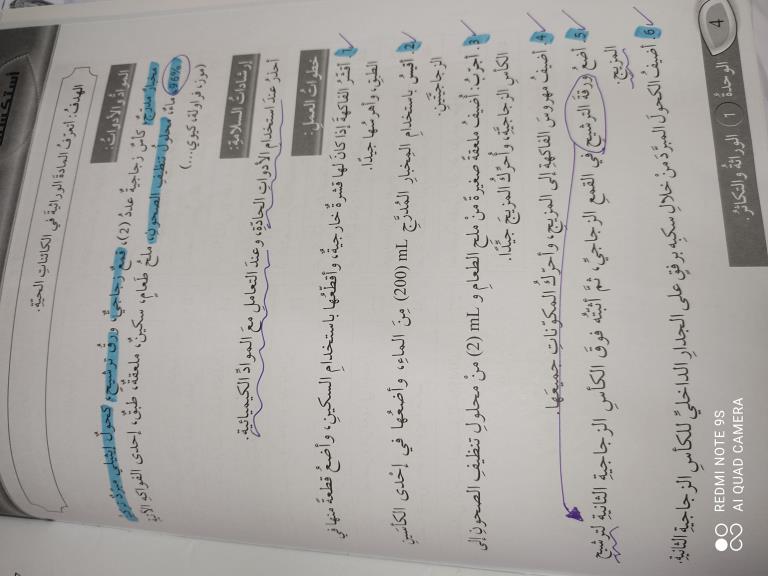 الهدفُ: أتعرّفُ المادةَ الوراثيةَ في الكائناتِ الحيّةِ.
الموادُّ والأدواتُ:
مِخبارٌ مدرّجٌ، كأسٌ زجاجيةٌ عددُ (2)، قمعٌ زجاجيٌّ، ورقُ ترشيحٍ، كحولٌ إيثيليٌّ مبرَّدٌ
96%، ماءٌ، محلولُ تنظيفِ الصحونِ، ملحُ طعامٍ، سكينٌ، ملعقةٌ، طبقٌ، إحدى الفواكهِ الآتيةِ
(موز، فراولة، كيوي...)
إرشاداتُ السلامةِ:
أحذرُ عندَ استخدامِ الأدواتِ الحادّةِ، وعندَ التعاملِ معَ الموادِّ الكيميائيةِ.
خطواتُ العملِ:
1. أقشّرُ الفاكهةَ إذا كانَ لها قشرةٌ خارجيةٌ، وأقطّعُها باستخدامِ السكينِ، وأضعُ قطعةً منها في
الطبقِ، وأهرسُها جيدًا.
2. أقيسُ باستخدامِ المِخبارِ المُدرَّجِ 200) mL) مِنَ الماءِ، وأضعُها في إحدى الكأسينِ
الزجاجيّتَينِ.
3. أجرّبُ: أُضيفُ ملعقةً صغيرةً منْ ملحِ الطعامِ و 2) mL) منْ محلولِ تنظيفِ الصحونِ إلى
الكأسِ الزجاجيّةِ، وأحرّكُ المزيجَ جيدًا.
4. أضيفُ مهروسَ الفاكهةِ إلى المزيجِ، وأحرّكُ المكوّناتِ جميعَها.
5. أضعُ ورقةَ الترشيحِ في القمعِ الزجاجيِّ، ثمَّ أثبّتُه فوقَ الكأسِ الزجاجيةِ الثانيةِ لترشيحِ
المزيجِ.
6. أُضيفُ الكحولَ المبرَّدَ منْ خلالِ سكبِه برفقٍ على الجدارِ الداخليِّ للكأسِ الزجاجيةِ الثانيةِ.
الوحدةُ 1 الوراثةُ والتكاثرُ.
4
REDMI NOTE 9S
AI QUAD CAMERA